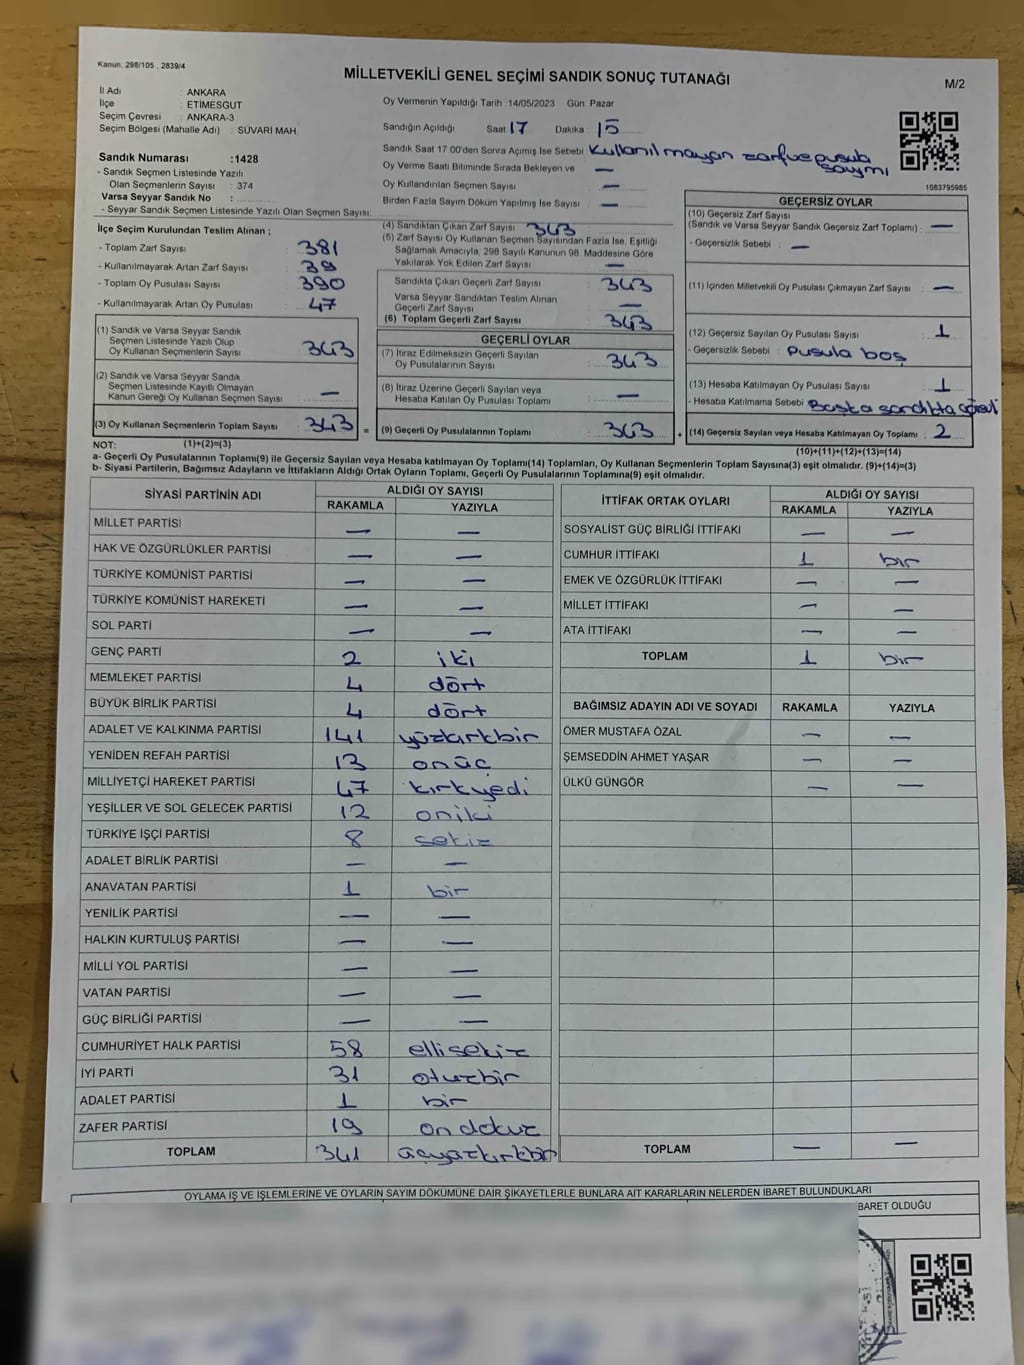 Kanun, 298/105 , 2839/4
MİLLETVEKİLİ GENEL SEÇİMİ SANDIK SONUÇ TUTANAĞI
M/2
İl Adı : ANKARA
İlçe : ETİMESGUT
Seçim Çevresi : ANKARA-3
Seçim Bölgesi (Mahalle Adı) : SÜVARİ MAH.
Sandık Numarası :1428
- Sandık Seçmen Listesinde Yazılı
Olan Seçmenlerin Sayısı : 374
Varsa Seyyar Sandık No :
- Seyyar Sandık Seçmen Listesinde Yazılı Olan Seçmen Sayısı:
Oy Vermenin Yapıldığı Tarih 14/05/2023 Gün: Pazar
Sandığın Açıldığı Saat 17 Dakika 15
Sandık Saat 17 00'den Sonra Açımış İse Sebebi Kullanılmayan zarf ve pusula sayımı
Oy Verme Saati Bitiminde Sırada Bekleyen ve
Oy Kullandırılan Seçmen Sayısı —
Birden Fazla Sayım Döküm Yapılmış İse Sayısı —
1083795985
İlçe Seçim Kurulundan Teslim Alınan ;
- Toplam Zarf Sayısı : 381
- Kullanılmayarak Artan Zarf Sayısı : 39
- Toplam Oy Pusulası Sayısı : 390
- Kullanılmayarak Artan Oy Pusulası : 47
(1) Sandık ve Varsa Seyyar Sandık
Seçmen Listesinde Yazılı Olup
Oy Kullanan Seçmenlerin Sayısı : 343
(2) Sandık ve Varsa Seyyar Sandık
Seçmen Listesinde Kayıtlı Olmayan
Kanun Gereği Oy Kullanan Seçmen Sayısı : —
(3) Oy Kullanan Seçmenlerin Toplam Sayısı : 343 =
(4) Sandıktan Çıkan Zarf Sayısı : 343
(5) Zarf Sayısı Oy Kullanan Seçmen Sayısından Fazla İse, Eşitliği
Sağlamak Amacıyla, 298 Sayılı Kanunun 98. Maddesine Göre
Yakılarak Yok Edilen Zarf Sayısı : —
Sandıkta Çıkan Geçerli Zarf Sayısı : 343
Varsa Seyyar Sandıktan Teslim Alınan
Geçerli Zarf Sayısı : —
(6) Toplam Geçerli Zarf Sayısı : 343
GEÇERLİ OYLAR
(7) İtiraz Edilmeksizin Geçerli Sayılan
Oy Pusulalarının Sayısı : 343
(8) İtiraz Üzerine Geçerli Sayılan veya
Hesaba Katılan Oy Pusulası Toplamı : —
(9) Geçerli Oy Pusulalarının Toplamı : 343 +
GEÇERSİZ OYLAR
(10) Geçersiz Zarf Sayısı
(Sandık ve Varsa Seyyar Sandık Geçersiz Zarf Toplamı) : —
- Geçersizlik Sebebi : —
(11) İçinden Milletvekili Oy Pusulası Çıkmayan Zarf Sayısı : —
(12) Geçersiz Sayılan Oy Pusulası Sayısı : 1
- Geçersizlik Sebebi : Pusula boş
(13) Hesaba Katılmayan Oy Pusulası Sayısı : 1
- Hesaba Katılmama Sebebi : Başka sandıkta
(14) Geçersiz Sayılan veya Hesaba Katılmayan Oy Toplamı : 2
NOT: (1)+(2)=(3) (10)+(11)+(12)+(13)=(14)
a- Geçerli Oy Pusulalarının Toplamı(9) ile Geçersiz Sayılan veya Hesaba katılmayan Oy Toplamı(14) Toplamları, Oy Kullanan Seçmenlerin Toplam Sayısına(3) eşit olmalıdır. (9)+(14)=(3)
b- Siyasi Partilerin, Bağımsız Adayların ve İttifakların Aldığı Ortak Oyların Toplamı, Geçerli Oy Pusulalarının Toplamına(9) eşit olmalıdır.
SİYASİ PARTİNİN ADI ALDIĞI OY SAYISI
RAKAMLA YAZIYLA
MİLLET PARTİSİ — —
HAK VE ÖZGÜRLÜKLER PARTİSİ — —
TÜRKİYE KOMÜNİST PARTİSİ — —
TÜRKİYE KOMÜNİST HAREKETİ — —
SOL PARTİ — —
GENÇ PARTİ 2 iki
MEMLEKET PARTİSİ 4 dört
BÜYÜK BİRLİK PARTİSİ 4 dört
ADALET VE KALKINMA PARTİSİ 141 yüzkırkbir
YENİDEN REFAH PARTİSİ 13 onüç
MİLLİYETÇİ HAREKET PARTİSİ 47 kırkyedi
YEŞİLLER VE SOL GELECEK PARTİSİ 12 oniki
TÜRKİYE İŞÇİ PARTİSİ 8 sekiz
ADALET BİRLİK PARTİSİ — —
ANAVATAN PARTİSİ 1 bir
YENİLİK PARTİSİ — —
HALKIN KURTULUŞ PARTİSİ — —
MİLLİ YOL PARTİSİ — —
VATAN PARTİSİ — —
GÜÇ BİRLİĞİ PARTİSİ — —
CUMHURİYET HALK PARTİSİ 58 ellisekiz
İYİ PARTİ 31 otuzbir
ADALET PARTİSİ 1 bir
ZAFER PARTİSİ 19 on dokuz
TOPLAM 341 üçyüzkırkbir
İTTİFAK ORTAK OYLARI ALDIĞI OY SAYISI
RAKAMLA YAZIYLA
SOSYALİST GÜÇ BİRLİĞİ İTTİFAKI — —
CUMHUR İTTİFAKI 1 bir
EMEK VE ÖZGÜRLÜK İTTİFAKI — —
MİLLET İTTİFAKI — —
ATA İTTİFAKI — —
TOPLAM 1 bir
BAĞIMSIZ ADAYIN ADI VE SOYADI RAKAMLA YAZIYLA
ÖMER MUSTAFA ÖZAL — —
ŞEMSEDDİN AHMET YAŞAR — —
ÜLKÜ GÜNGÖR — —
TOPLAM — —
OYLAMA İŞ VE İŞLEMLERİNE VE OYLARIN SAYIM DÖKÜMÜNE DAİR ŞİKAYETLERLE BUNLARA AİT KARARLARIN NELERDEN İBARET BULUNDUKLARI
BARET OLDUĞU